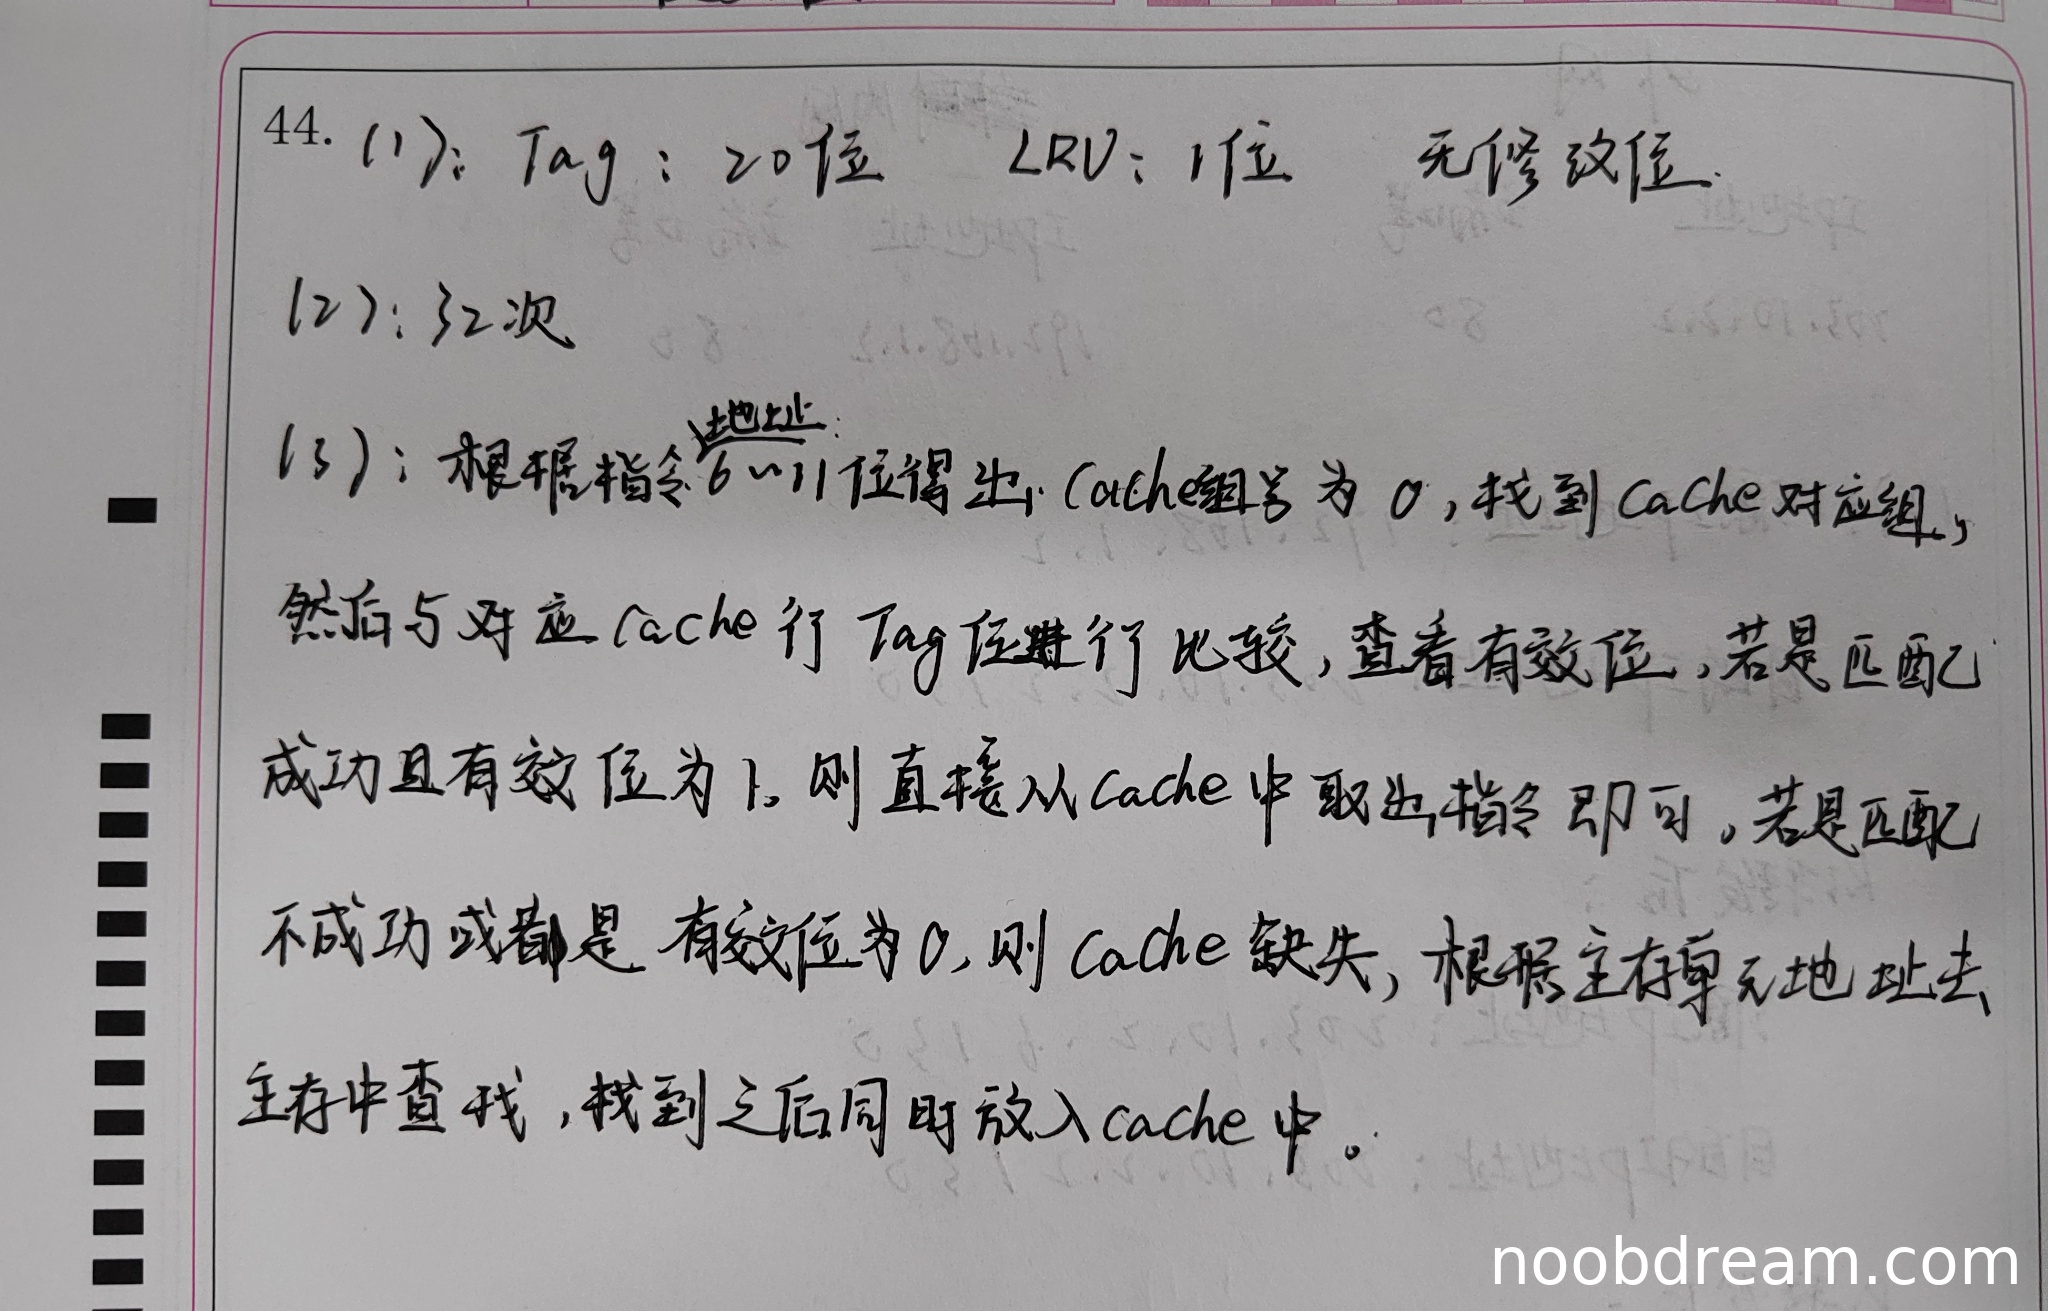 44. (1): Tag: 20位 LRU: 1位 无修改位.
(2): 32次
(3): 根据指令地址6~11位得出Cache组号为0,找到Cache对应组,
然后与对应Cache行Tag位进行比较,查看有效位,若是匹配
成功且有效位为1,则直接从Cache中取出指令即可。若是匹配
不成功或都是有效位为0,则Cache缺失,根据主存单元地址去
主存中查找,找到之后同时放入cache中。
noobdream.com